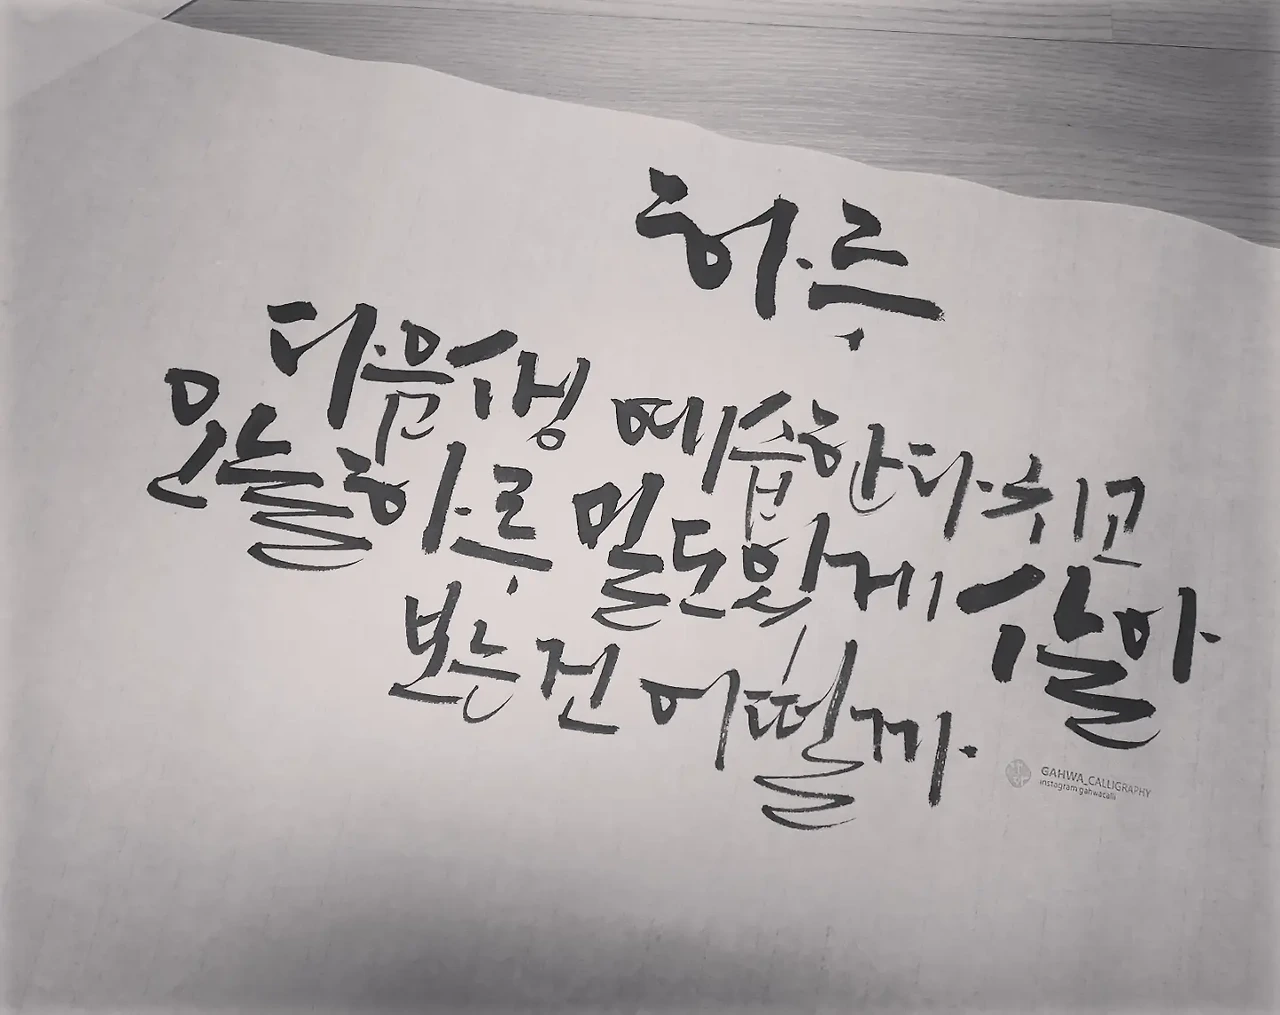 하루
다음생 예습한다 치고
오늘하루 밀도있게 살아
보는건 어떨까.
GAHWA_CALLIGRAPHY
instagram gahwacalli